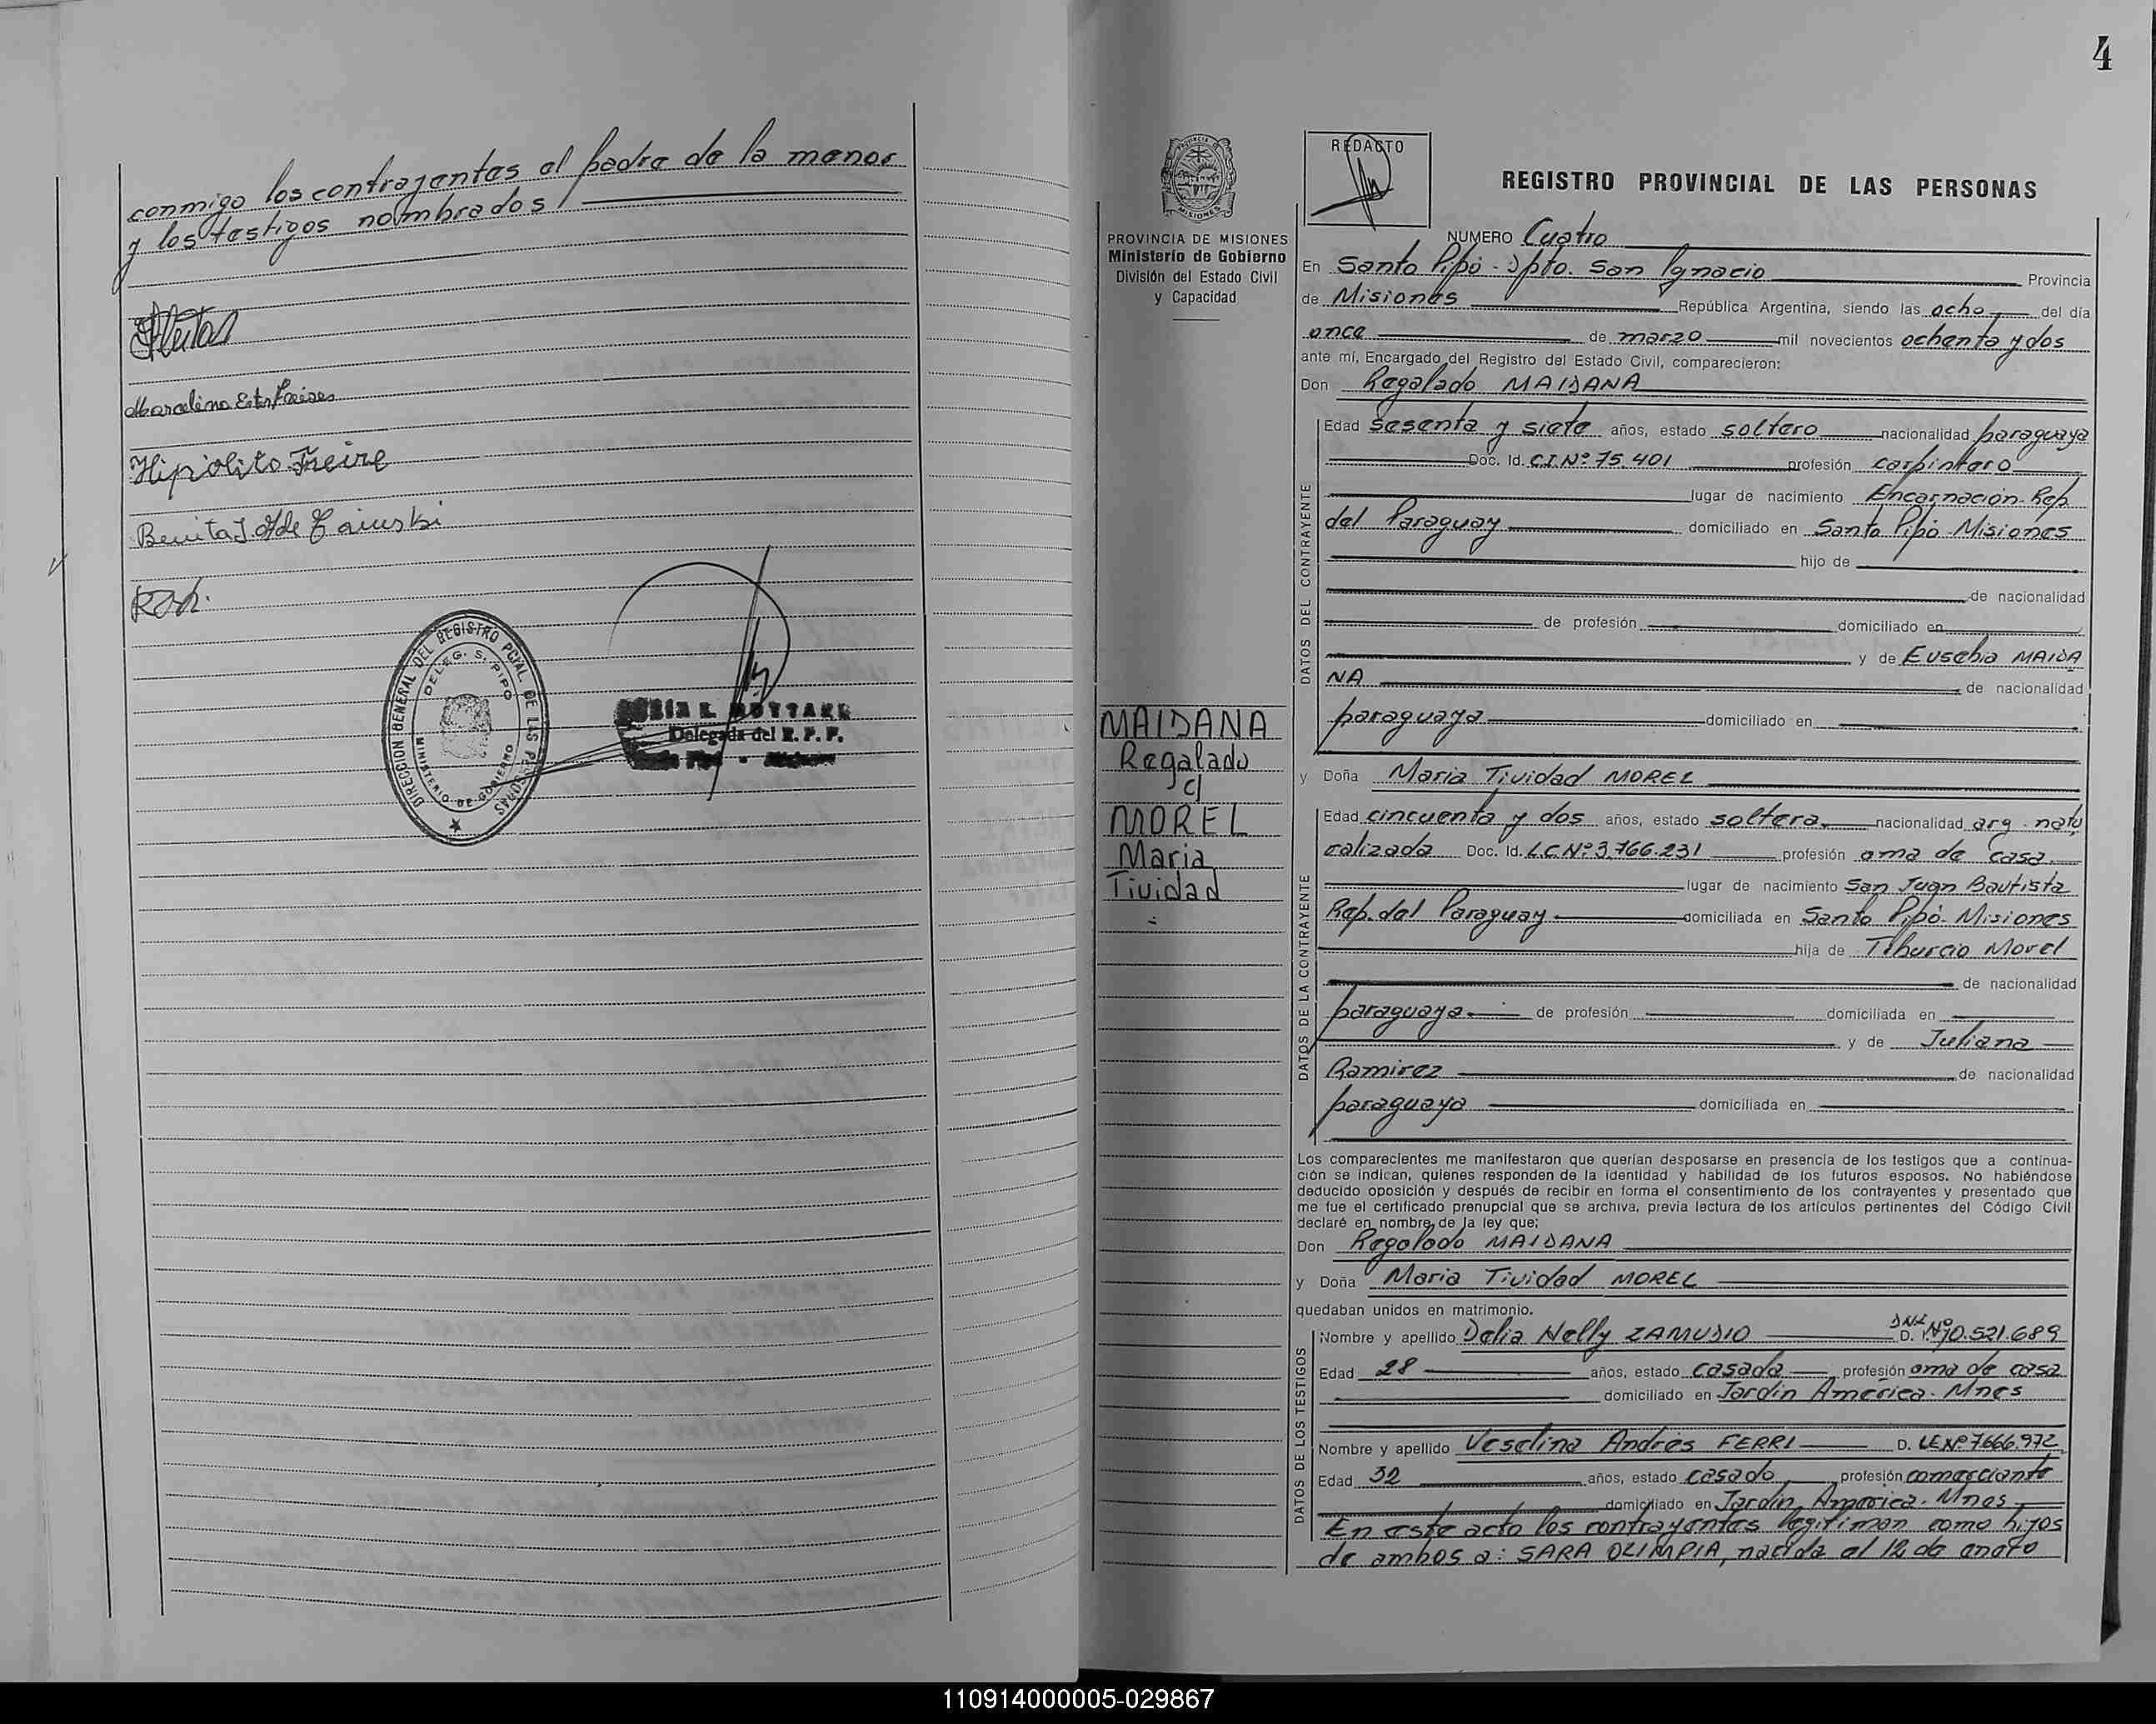 conmigo los contrayentes el padre de la menor
y los testigos nombrados
Marcelina Ester Freires
Hipólito Freire
Benita J. de
DIRECCION GENERAL DEL REGISTRO PCIAL. DE LAS PERSONAS
DELEG. S. PIPO
MINISTERIO DE GOBIERNO
Delegada del R. P. P.
4
PROVINCIA DE MISIONES
Ministerio de Gobierno
División del Estado Civil
y Capacidad
MAIDANA
Regalado
c/
MOREL
Maria
Tividad
REDACTO
REGISTRO PROVINCIAL DE LAS PERSONAS
NUMERO Cuatro
En Santo Pipó - Dpto. San Ignacio Provincia
de Misiones República Argentina, siendo las ocho del día
once de marzo mil novecientos ochenta y dos
ante mí, Encargado del Registro del Estado Civil, comparecieron:
Don Regalado MAIDANA
DATOS DEL CONTRAYENTE
Edad sesenta y siete años, estado soltero nacionalidad paraguaya
Doc. Id. C.I Nº 75.401 profesión carpintero
lugar de nacimiento Encarnación-Rep.
del Paraguay domiciliado en Santo Pipó-Misiones
hijo de
de nacionalidad
de profesión domiciliado en
y de Eusebia MAIDA
NA de nacionalidad
paraguaya domiciliado en
y Doña Maria Tividad MOREL
DATOS DE LA CONTRAYENTE
Edad cincuenta y dos años, estado soltera nacionalidad arg - natu
ralizada Doc. Id. L.C. Nº 3.766.231 profesión ama de casa
lugar de nacimiento San Juan Bautista
Rep. del Paraguay domiciliada en Santo Pipó-Misiones
hija de Tiburcio Morel
de nacionalidad
paraguaya de profesión domiciliada en
y de Juliana
Ramirez de nacionalidad
paraguaya domiciliada en
Los comparecientes me manifestaron que querían desposarse en presencia de los testigos que a continua-
ción se indican, quienes responden de la identidad y habilidad de los futuros esposos. No habiéndose
deducido oposición y después de recibir en forma el consentimiento de los contrayentes y presentado que
me fue el certificado prenupcial que se archiva, previa lectura de los artículos pertinentes del Código Civil
declaré en nombre de la ley que:
Don Regalado MAIDANA
y Doña Maria Tividad MOREL
quedaban unidos en matrimonio.
DATOS DE LOS TESTIGOS
Nombre y apellido Delia Nelly ZAMUDIO D. DNI Nº 10.521.689
Edad 28 años, estado casada profesión ama de casa
domiciliado en Jardín América - Mnes
Nombre y apellido Veselina Andrés FERRI D. LE Nº 7.666.972
Edad 32 años, estado casado profesión comerciante
domiciliado en Jardín América - Mnes
En este acto los contrayentes legitiman como hijos
de ambos a: SARA OLIMPIA, nacida el 12 de enero
110914000005-029867